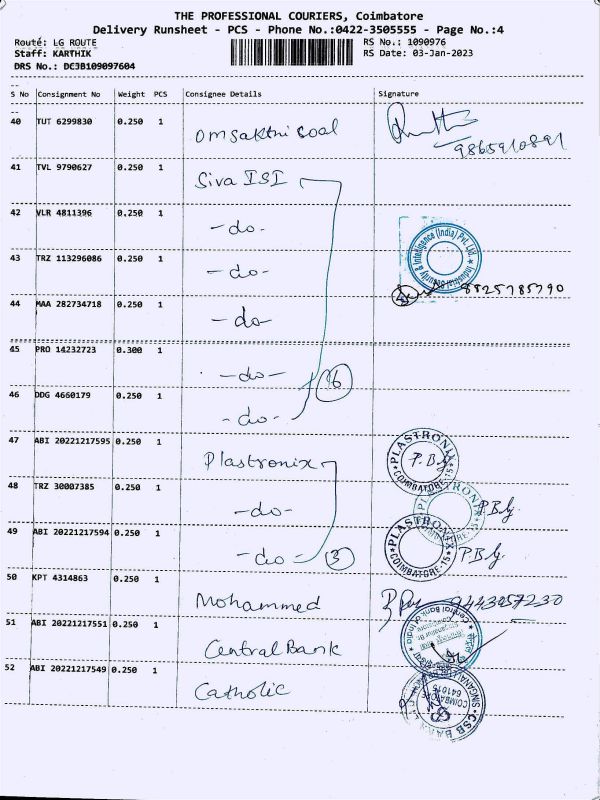 THE PROFESSIONAL COURIERS, Coimbatore
Delivery Runsheet - PCS - Phone No.:0422-3505555 - Page No.:4
Route: LG ROUTE
RS No.: 1090976
Staff: KARTHIK
RS Date: 03-Jan-2023
DRS No.: DCJB109097604
S No Consignment No Weight PCS Consignee Details Signature
40 TUT 6299830 0.250 1 Omsakthi Coal
9865910891
41 TVL 9790627 0.250 1 Siva ISI
42 VLR 4811396 0.250 1 -do-
43 TRZ 113296086 0.250 1 -do-
Industrial Security & Intelligence (India) Pvt. Ltd.
8825785790
44 MAA 282734718 0.250 1 -do-
45 PRO 14232723 0.300 1 -do-
6
46 DDG 4660179 0.250 1 -do-
47 ABI 20221217595 0.250 1 Plastronix
PLASTRONIX COIMBATORE-15
P.B.
48 TRZ 30007385 0.250 1 -do-
P.B.
49 ABI 20221217594 0.250 1 -do-
3
PLASTRONIX COIMBATORE-15
P.B.
50 KPT 4314863 0.250 1 Mohammed
9443057230
51 ABI 20221217551 0.250 1 Central Bank
Central Bank of India
52 ABI 20221217549 0.250 1 Catholic
CSB BANK
SINGANALLUR
COIMBATORE
641015